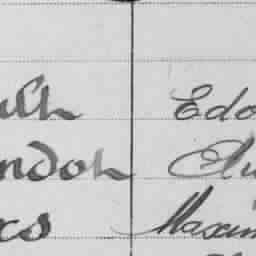 ulh Edo
ndoh Au
xs Maxim